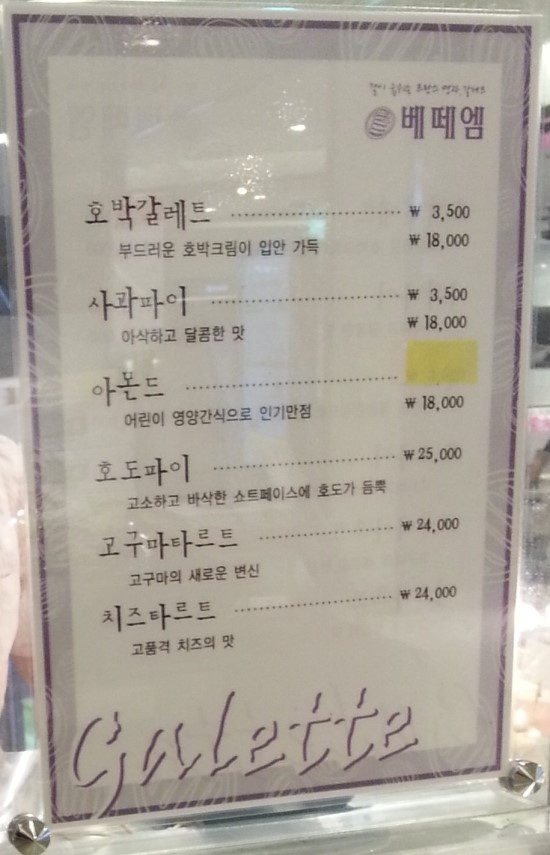 베떼엠
호박갈레트 ₩ 3,500
부드러운 호박크림이 입안 가득 ₩ 18,000
사과파이 ₩ 3,500
아삭하고 달콤한 맛 ₩ 18,000
아몬드
어린이 영양간식으로 인기만점 ₩ 18,000
호도파이 ₩ 25,000
고소하고 바삭한 쇼트페이스에 호도가 듬뿍
고구마타르트 ₩ 24,000
고구마의 새로운 변신
치즈타르트 ₩ 24,000
고품격 치즈의 맛
Galette